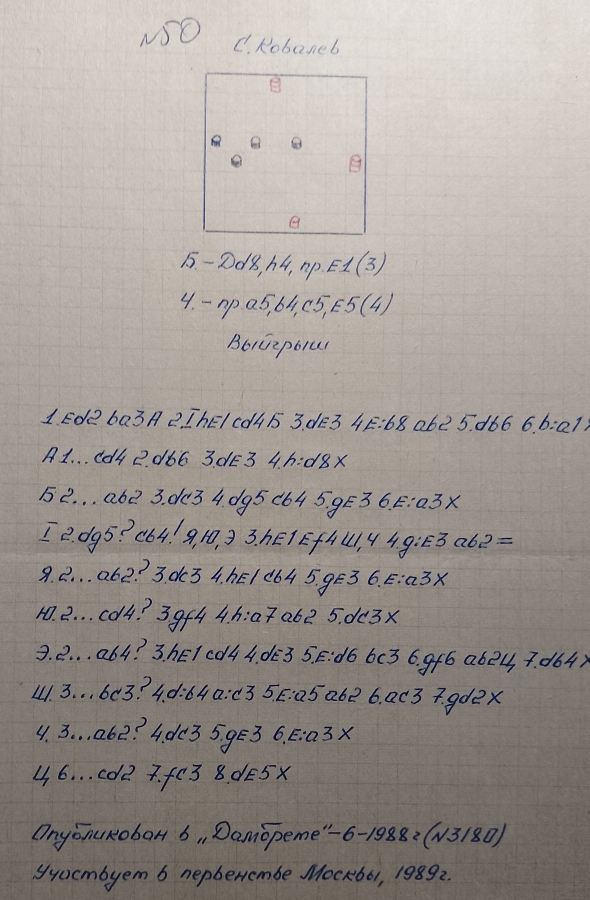 №50 С. Ковалев
Б. - Dd8, h4, пр. E1 (3)
Ч. - пр. a5, b4, c5, E5 (4)
Выйгрыш
1. Ed2 ba3 А 2. I hE1 cd4 Б 3. dE3 4. E:b8 ab2 5. db6 6. b:a1X
А 1... cd4 2. db6 3. dE3 4. h:d8X
Б 2... ab2 3. dc3 4. dg5 cb4 5. gE3 6. E:a3X
I 2. dg5? cb4! Я, Ю, Э 3. hE1 Ef4 Ш, Ч 4. g:E3 ab2 =
Я. 2... ab2? 3. dc3 4. hE1 cb4 5. gE3 6. E:a3X
Ю. 2... cd4? 3. gf4 4. h:a7 ab2 5. dc3X
Э. 2... ab4? 3. hE1 cd4 4. dE3 5. E:d6 bc3 6. gf6 ab2 Ц 7. db4X
Ш. 3... bc3? 4. d:b4 a:c3 5. E:a5 ab2 6. ac3 7. gd2X
Ч. 3... ab2? 4. dc3 5. gE3 6. E:a3X
Ц 6... cd2 7. fc3 8. dE5X
Опубликован в „Дамбрете"-6-1988г (№3180)
Участвует в первенстве Москвы, 1989г.